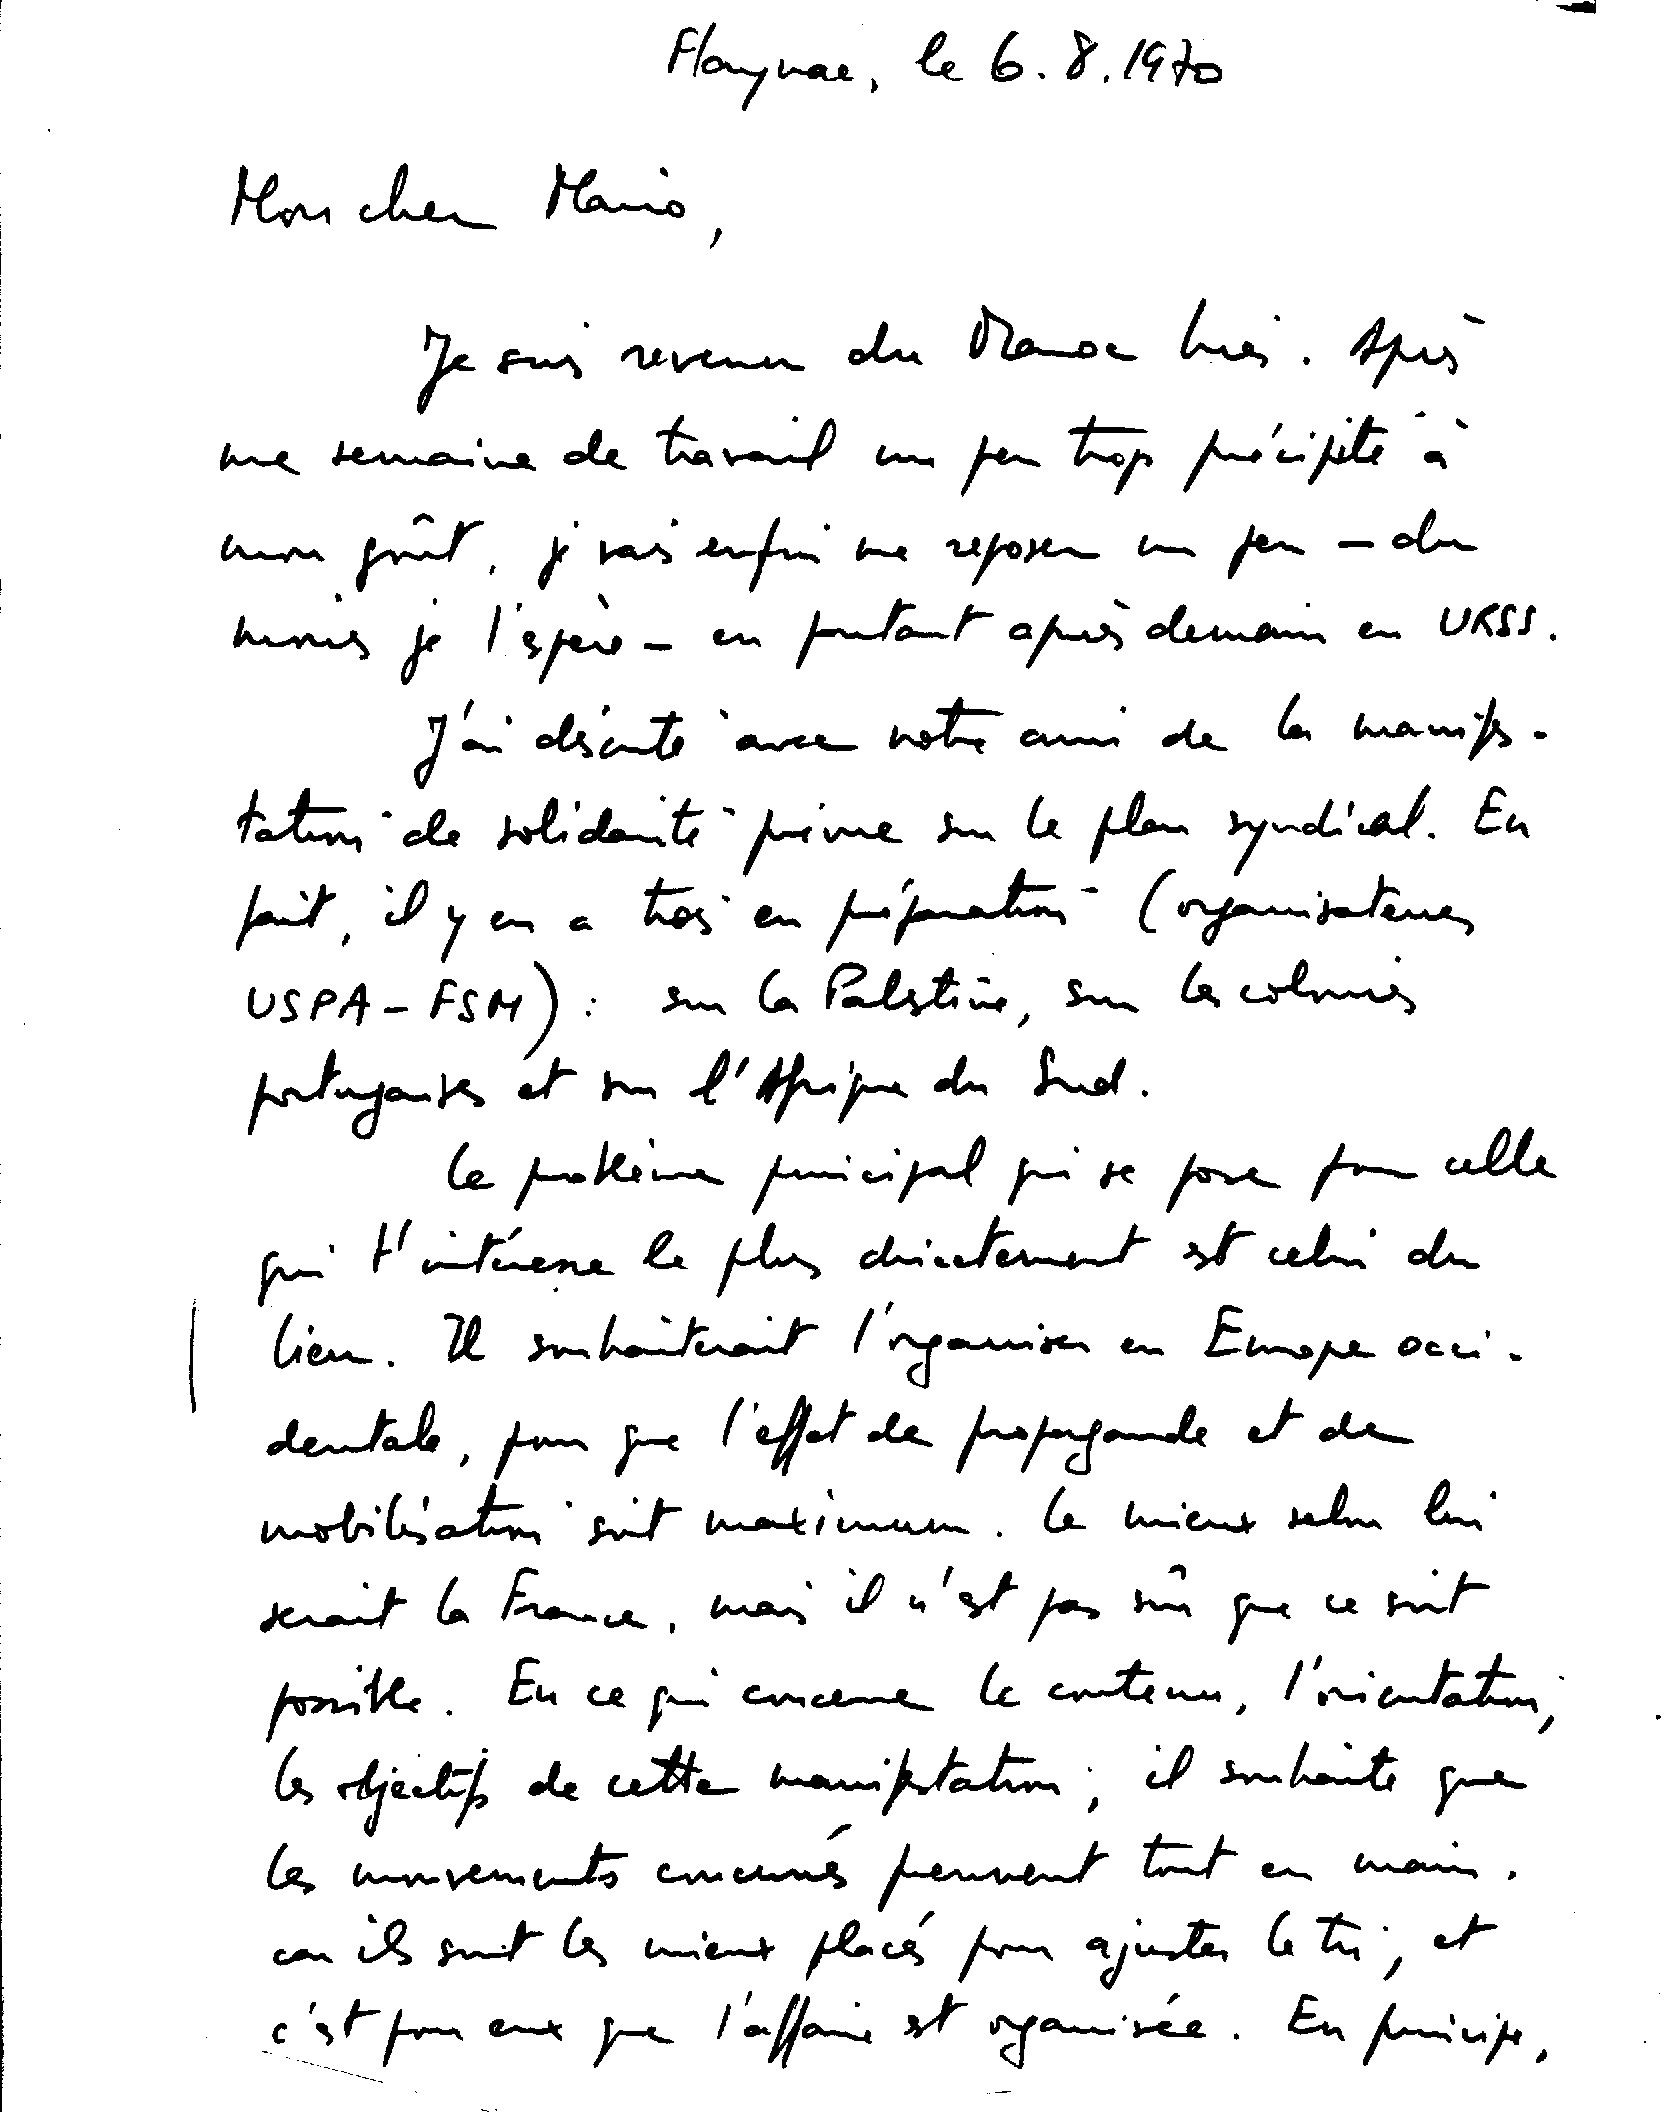 Flaynac, le 6.8.1970
Mon cher Mario,
Je suis revenu du Maroc hier. Après
une semaine de travail un peu trop précipité à
mon goût, je vais enfin me reposer un peu – du
moins je l'espère – en partant après demain en URSS.
J'ai discuté avec notre ami de la manifes-
tation de solidarité prévue sur le plan syndical. En
fait, il y en a trois en préparation (organisateurs
USPA – FSM) : sur la Palestine, sur les colonies
portugaises et sur l'Afrique du Sud.
Le problème principal qui se pose pour celle
qui t'intéresse le plus directement est celui du
lieu. Il souhaiterait l'organiser en Europe occi-
dentale, pour que l'effet de propagande et de
mobilisation soit maximum. Le mieux selon lui
serait la France, mais il n'est pas sûr que ce soit
possible. En ce qui concerne le contenu, l'orientation,
les objectifs de cette manifestation, il souhaite que
les mouvements concernés prennent tout en main,
car ils sont les mieux placés pour ajuster le tir, et
c'est pour eux que l'affaire est organisée. En principe,